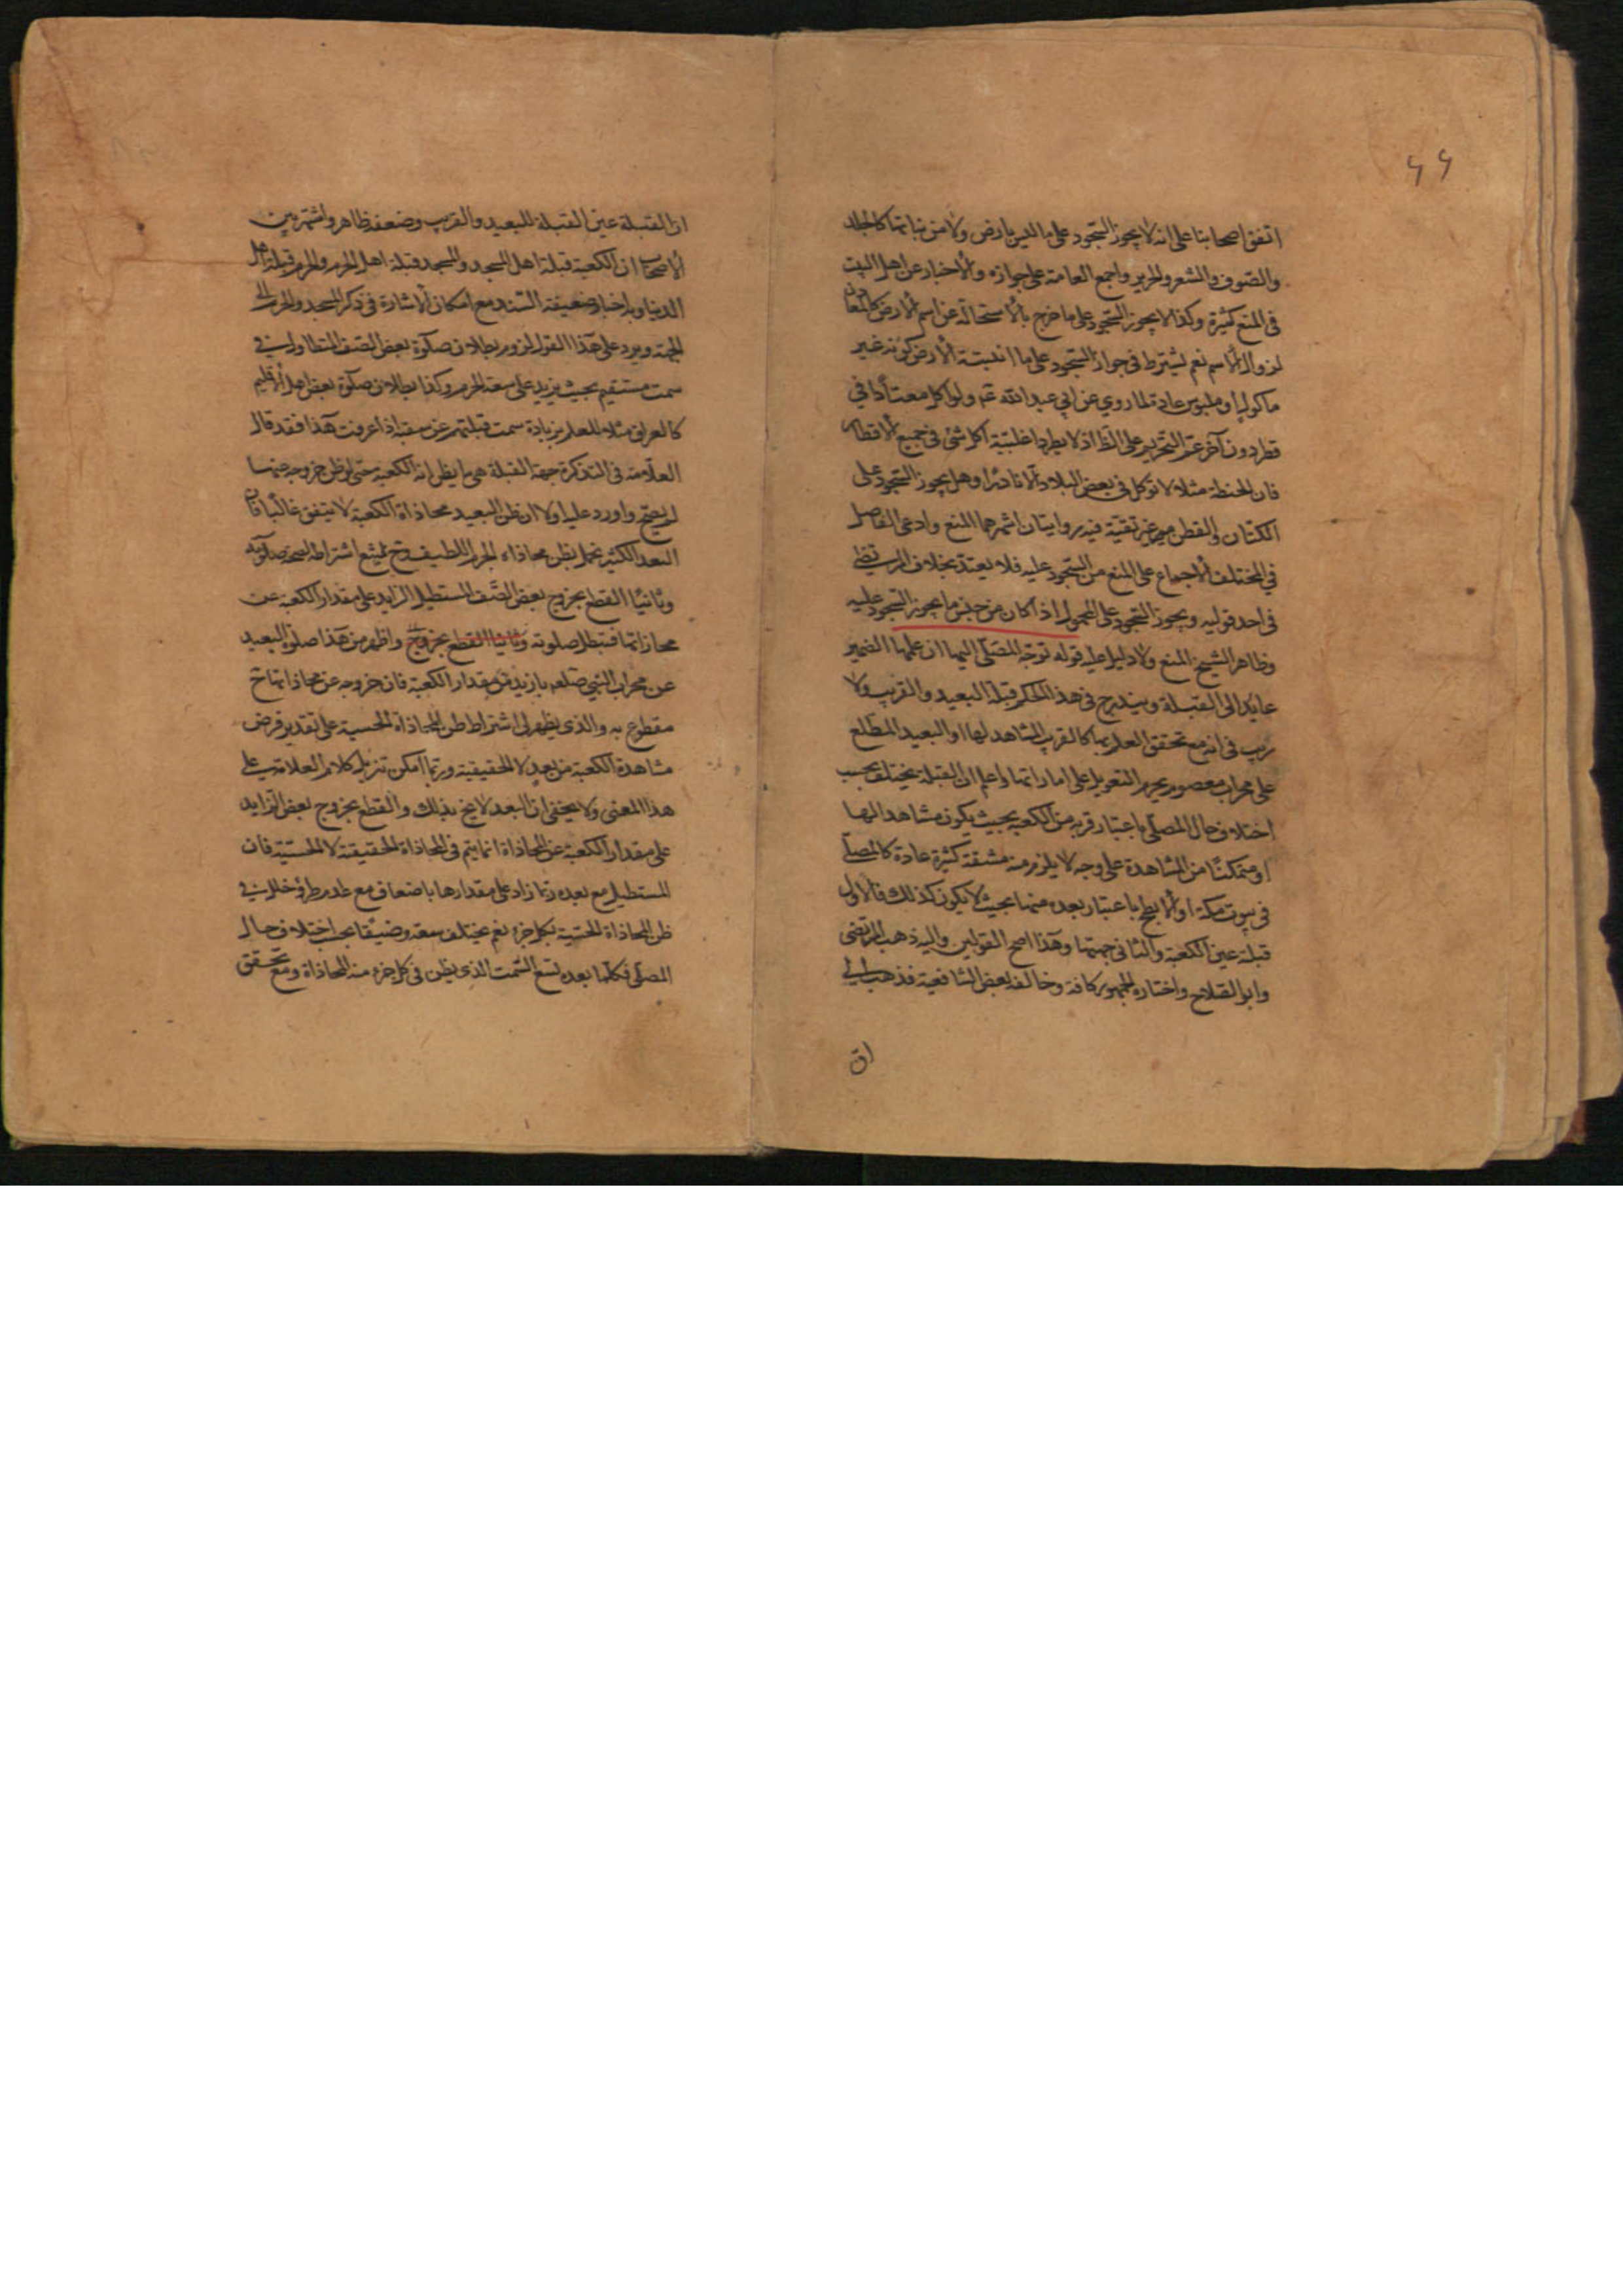 ۶۶
اتفق اصحابنا على انه لا يجوز السجود على ما ليس بارض ولا من نباتها كالجلد
والصوف والشعر والحرير واجمع العامة على جوازه والاخبار عن اهل البيت
في المنع كثيرة وكذا لا يجوز السجود على ما خرج بالاستحالة عن اسم الارض كالمعادن
لزوال الاسم نعم يشترط في جواز السجود على ما انبتته الارض كونه غير
ماكول او ملبوس عادة لما روي عن ابي عبد الله عم ولو اكل معتادا في
قطر دون آخر عم التحريم على الظ اذ لا يطرد اغلبية اكل شئ في جميع الاقطار
فان الحنطة مثلا لا توكل في بعض البلاد الا نادرا وهل يجوز السجود على
الكتان والقطن من غير تقية فيه روايتان اشهرهما المنع وادعى الفاضل
في المختلف الاجماع على المنع من السجود عليه فلا يعتد بخلاف المرتضى
في احد قوليه ويجوز السجود على المحمول اذا كان من جنس ما يجوز السجود عليه
وظاهر الشيخ المنع ولا دليل عليه قوله توجه المصلي اليها ان علمها الضمير
عايد الى القبلة ويندرج في هذا الحكم قبلة البعيد والقريب ولا
ريب في انه مع تحقق العلم بها كالقريب المشاهد لها او البعيد المطلع
على محراب معصوم يحرم التعويل على اماراتها واعلم ان القبلة يختلف بحسب
اختلاف حال المصلي باعتبار قربه من الكعبة بحيث يكون مشاهدا لها
او متمكنا من المشاهدة على وجه لا يلزم منه مشقة كثيرة عادة كالمصلي
في بيوت مكة او الابطح باعتبار بعده منها بحيث لا يكون كذلك فالاول
قبلة عين الكعبة والثاني جهتها وهذا اصح القولين واليه ذهب المرتضى
وابو الصلاح واختاره الجمهور كافة وخالف بعض الشافعية فذهب الى
ان
ان القبلة عين القبلة للبعيد والقريب وضعفه ظاهر واشتهر بين
الاصحاب ان الكعبة قبلة اهل المسجد والمسجد قبلة اهل الحرم والحرم قبلة اهل
الدنيا وبه اخبار ضعيفة السند مع امكان الاشارة في ذكر المسجد والحرم الى
الجهة ويرد على هذا القول لزوم بطلان صلوة بعض الصف المتطاول في
سمت مستقيم بحيث يزيد على سعة الحرم وكذا بطلان صلوة بعض اهل الاقليم
كالعراق مثلا للعلم بزيادة سمت قبلتهم عن سعته اذا عرفت هذا فقد قال
العلامة في التذكرة جهة القبلة هي ما يظن انه الكعبة حتى لو ظن خروجه عنها
لم يصح واورد عليه اولا ان ظن البعيد محاذاة الكعبة لا يتفق غالبا فان
البعد الكثير يخل بظن محاذاة الجرم اللطيف وح يمتنع اشتراطه لصحة صلوته
وثانيا القطع بخروج بعض الصف المستطيل الزايد على مقدار الكعبة عن
محاذاتها فتبطل صلوته وثانيا القطع بخروج واظهر من هذا صلوة البعيد
عن محراب النبي صلعم بازيد من مقدار الكعبة فان خروجه عن محاذاتها ح
مقطوع به والذي يظهر لي اشتراط ظن المحاذاة الحسية على تقدير فرض
مشاهدة الكعبة من بعد لا الحقيقية وربما امكن تنزيل كلام العلامة على
هذا المعنى ولا يخفى ان البعد لا يخل بذلك والقطع بخروج بعض الزايد
على مقدار الكعبة عن المحاذاة انما يتم في المحاذاة الحقيقة لا الحسية فان
المستطيل مع بعده ربما زاد على مقدارها باضعاف مع عدم طرو خلل في
ظن المحاذاة الحسية بكل جزء نعم يختلف سعة وضيقا بحسب اختلاف حال
المصلي فكلما بعده تسع السمت الذي يظن في كل جزء منه المحاذاة ومع تحقق